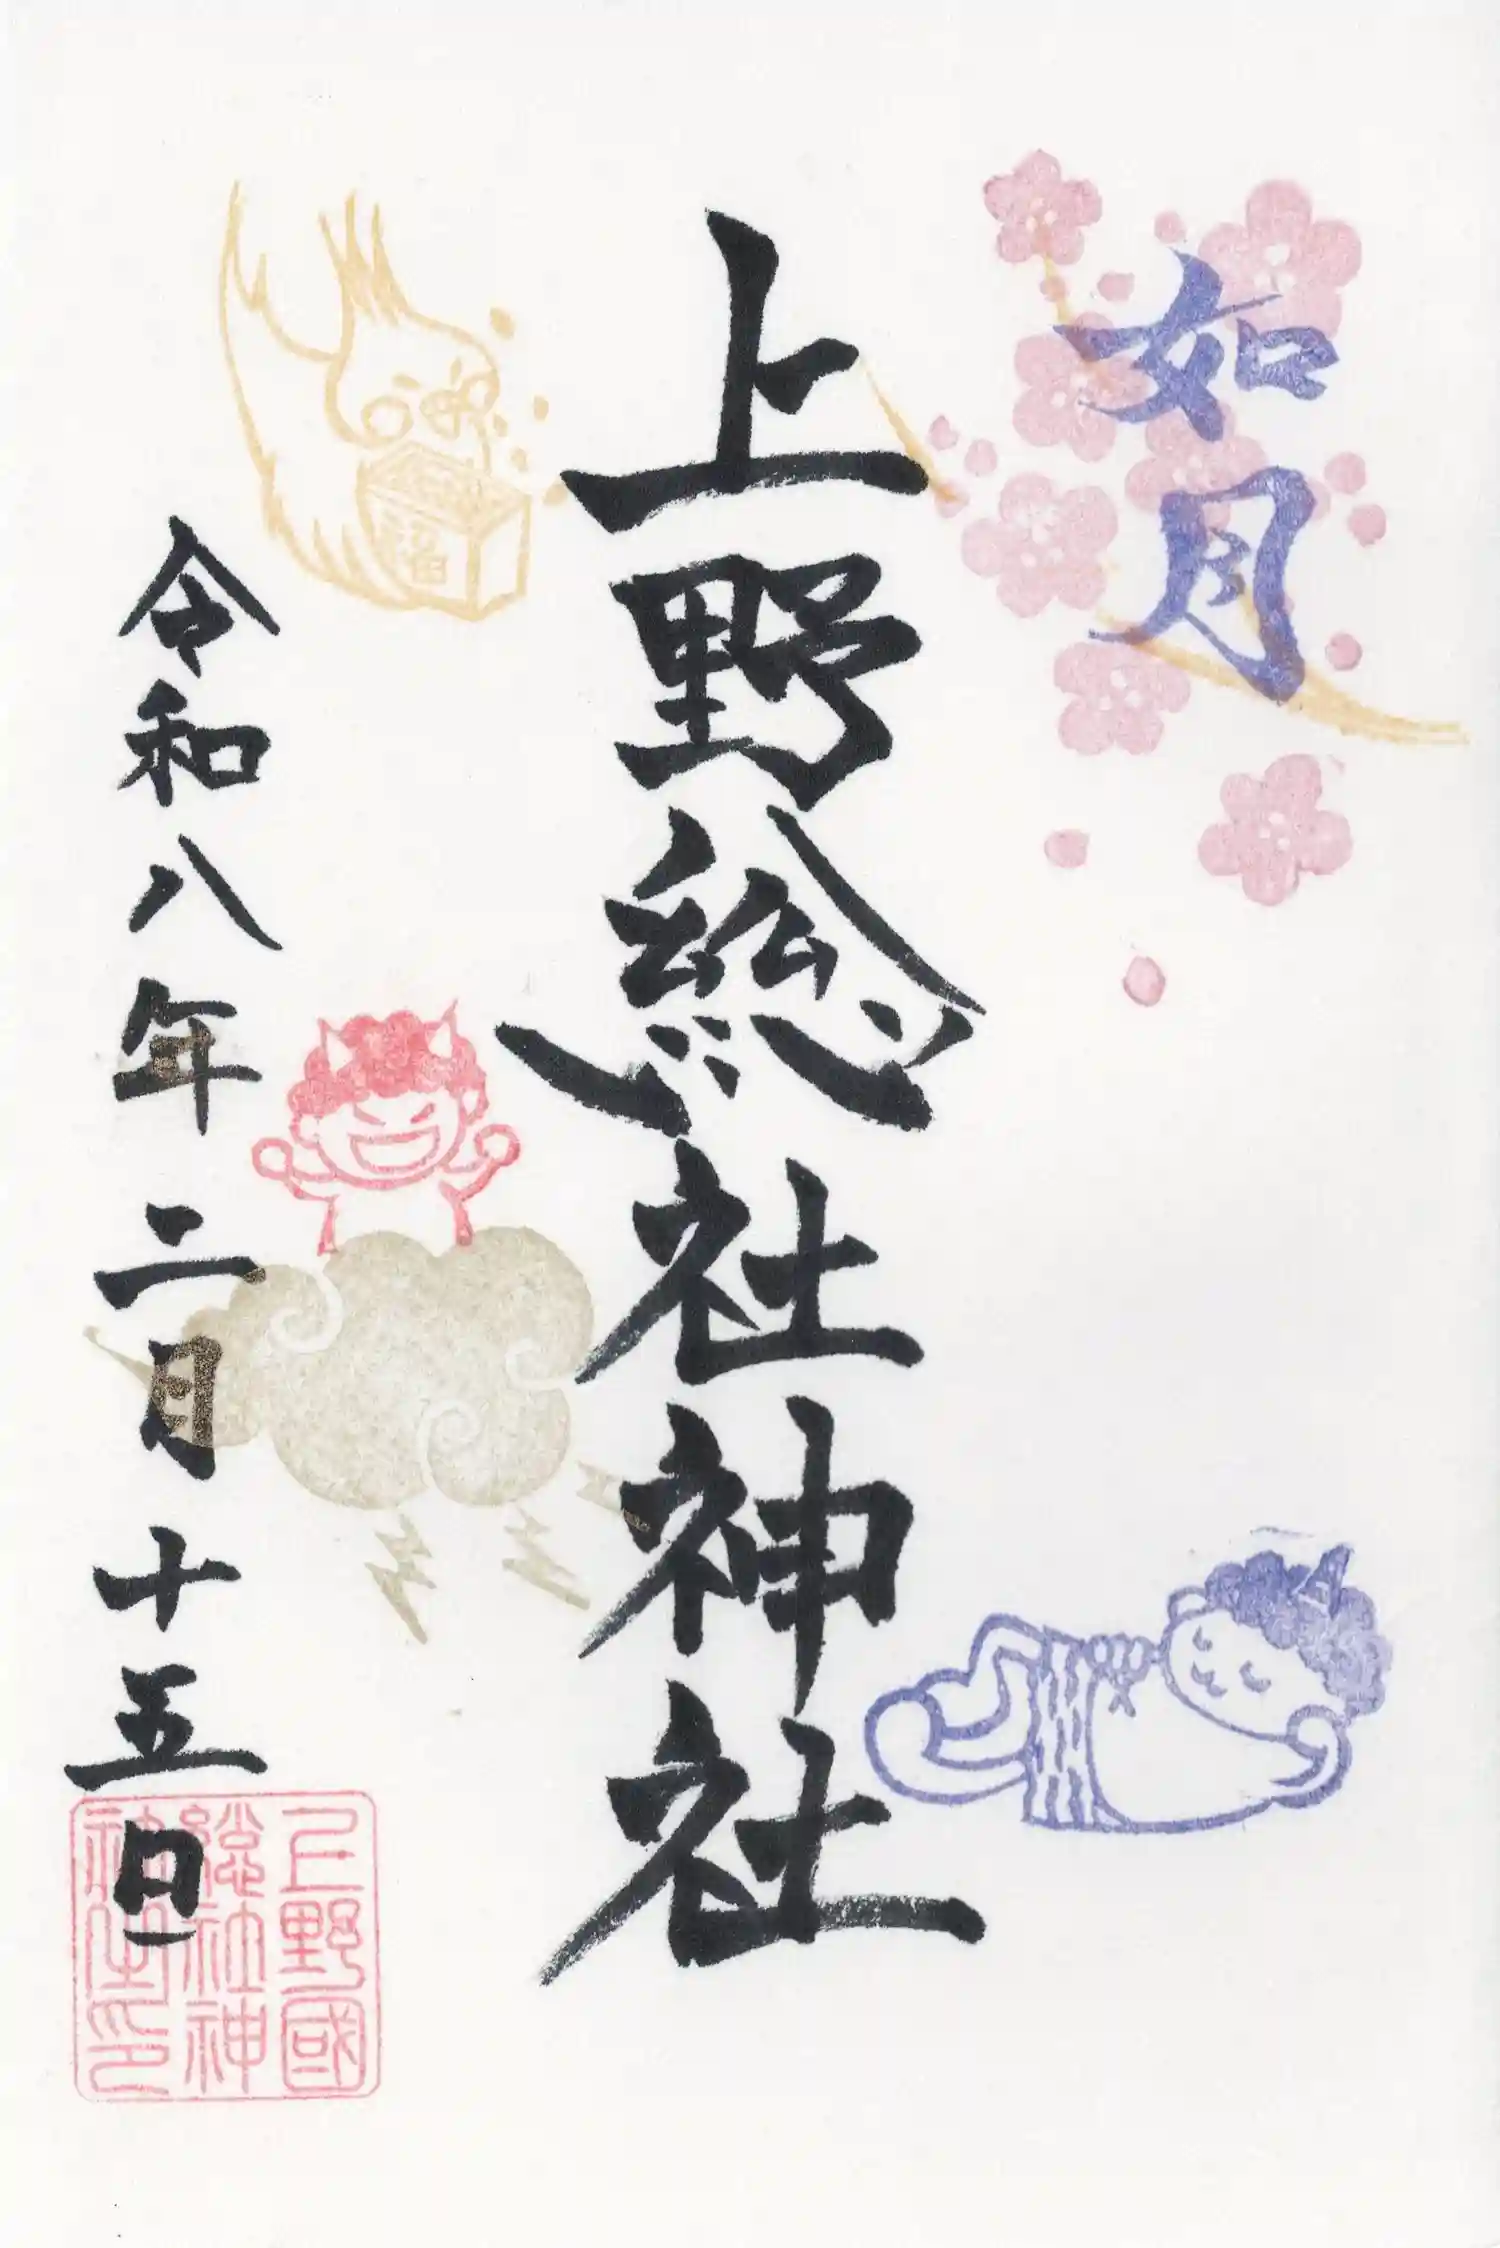 如月
上野総社神社
福
令和八年二月十五日
上野國
総社神
社之印